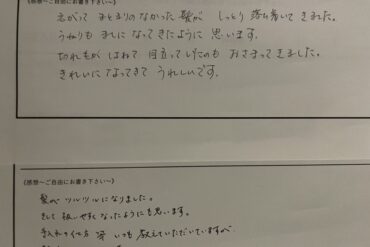 ねがって まとまりのなかった 髪が しっとり 落ち着いて きました。
うねりも ましに なってきたように 思います。
切れもが はねて 目立っていたのも おさまってきました。
きれいに なってきて うれしいです。
《感想～ご自由にお書き下さい～》
髪が ツルツルに なりました。
そして 扱いやすく なったようにも 思います。
手入れの仕方 等 いつも 教えていただいていますが